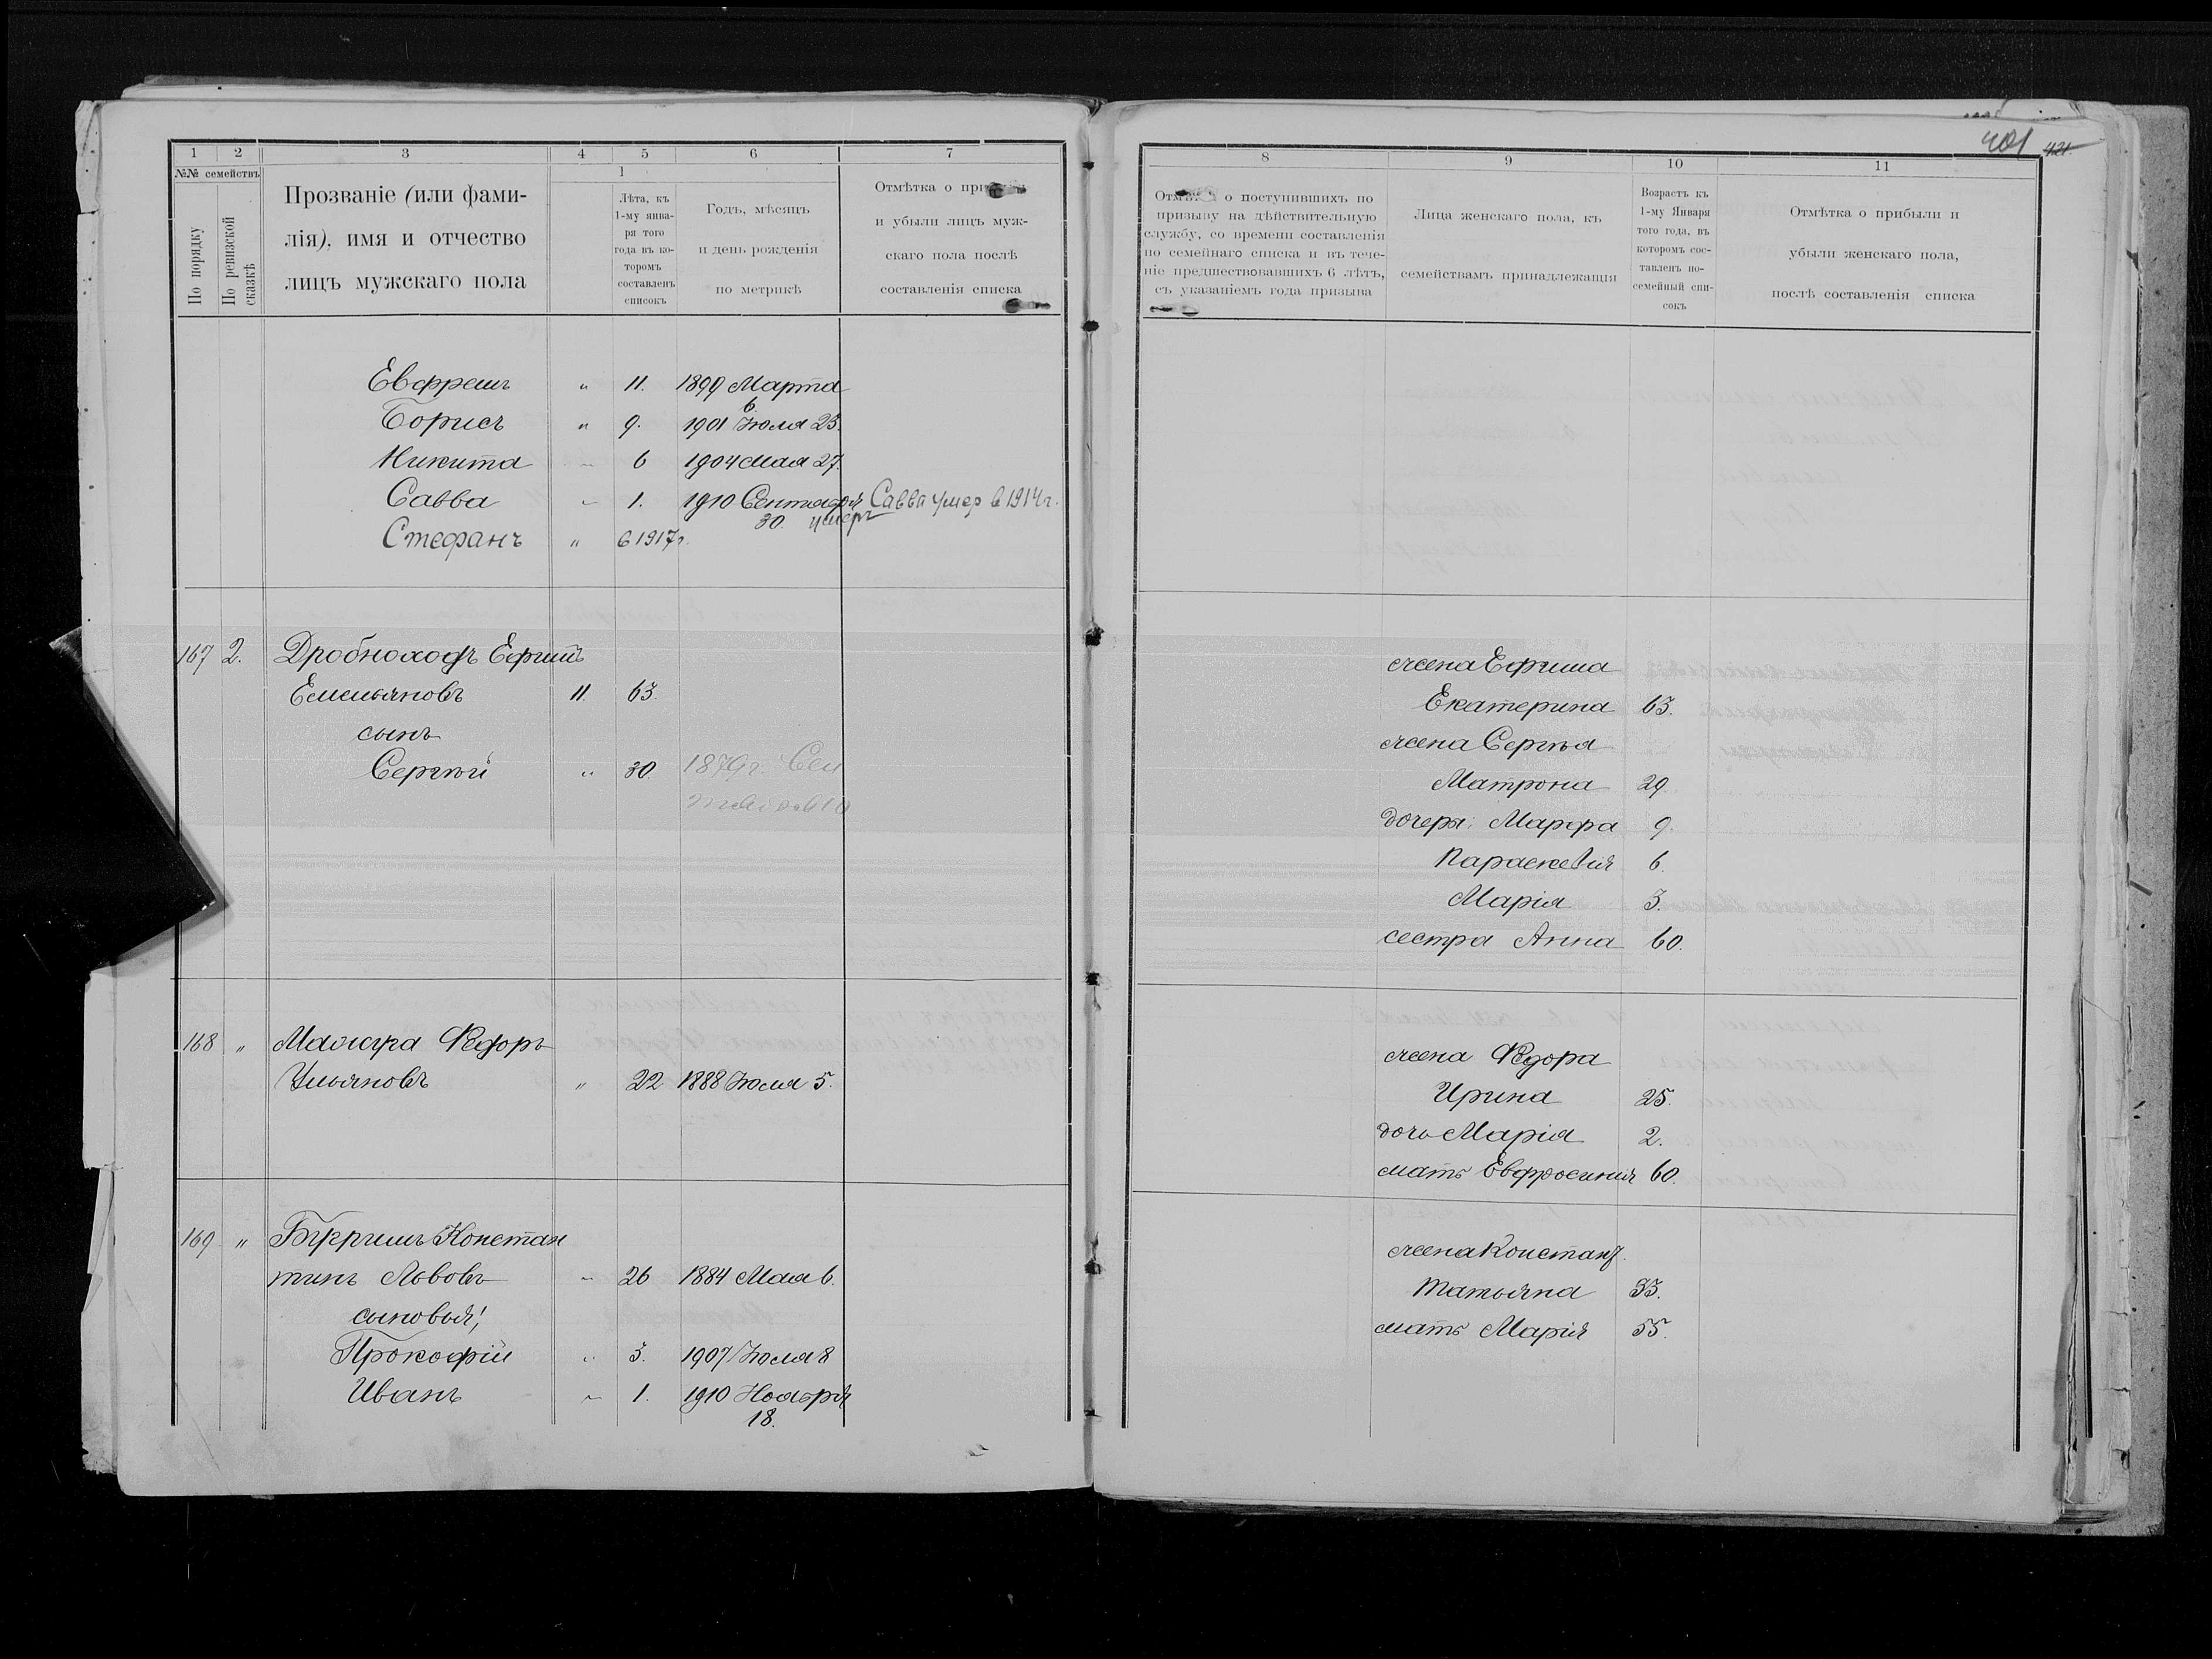 401 421.
1 2 3 4 5 6 7
№№ семействъ
По порядку
По ревизской сказкѣ
Прозваніе (или фами-
лія), имя и отчество
лицъ мужскаго пола
1
Лѣта, къ
1-му янва-
ря того
года въ ко-
торомъ
составленъ
списокъ
Годъ, мѣсяцъ
и день рожденія
по метрикѣ
Отмѣтка о
и убыли лицъ муж-
скаго пола послѣ
составленія списка
Евфремъ " 11. 1899 Марта
6.
Борисъ " 9. 1901 Іюля 23.
Никита " 6 1904 Мая 27.
Савва " 1. 1910 Сентября Савва умер в 1914 г.
30. умеръ
Стефанъ " в 1917 г.
167 2. Дробноходъ Ефимъ
Емельяновъ 11. 63.
сынъ
Сергѣй " 30. 1879 г. Сен
тября 10
168 " Федоръ
Ульяновъ " 22 1888 Іюля 5.
169 " Константи
тинъ Львовъ " 26 1884 Мая 6.
сыновья:
Прокофій " 3. 1907 Іюля 8
Иванъ " 1. 1910 Ноября
18.
8 9 10 11
о поступившихъ по
призыву на дѣйствительную
службу, со времени составленія
по семейнаго списка и въ тече-
ніе предшествовавшихъ 6 лѣтъ,
съ указаніемъ года призыва
Лица женскаго пола, къ
семействамъ принадлежащія
Возрастъ къ
1-му Января
того года, въ
которомъ сос-
тавленъ по-
семейный спи-
сокъ
Отмѣтка о прибыли и
убыли женскаго пола,
послѣ составленія списка
жена Ефима
Екатерина 63.
жена Сергѣя
Матрона 29
дочери: Марфа 9.
Параскевія 6
Марія 3.
сестра Анна 60.
жена Федора
Ирина 25.
дочь Марія 2.
мать Евфросинія 60.
жена Констант.
Татьяна 33.
мать Марія 55.